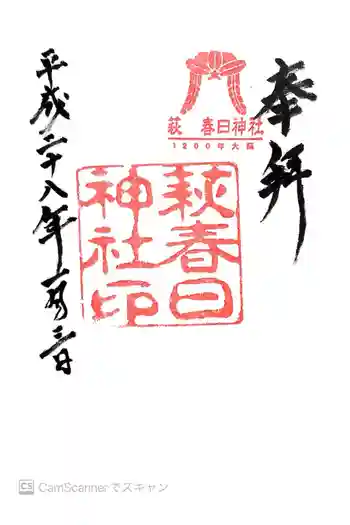 奉拝
萩 春日神社
1200年大祭
萩春日
神社印
平成二十八年一月三日
CS CamScannerでスキャン